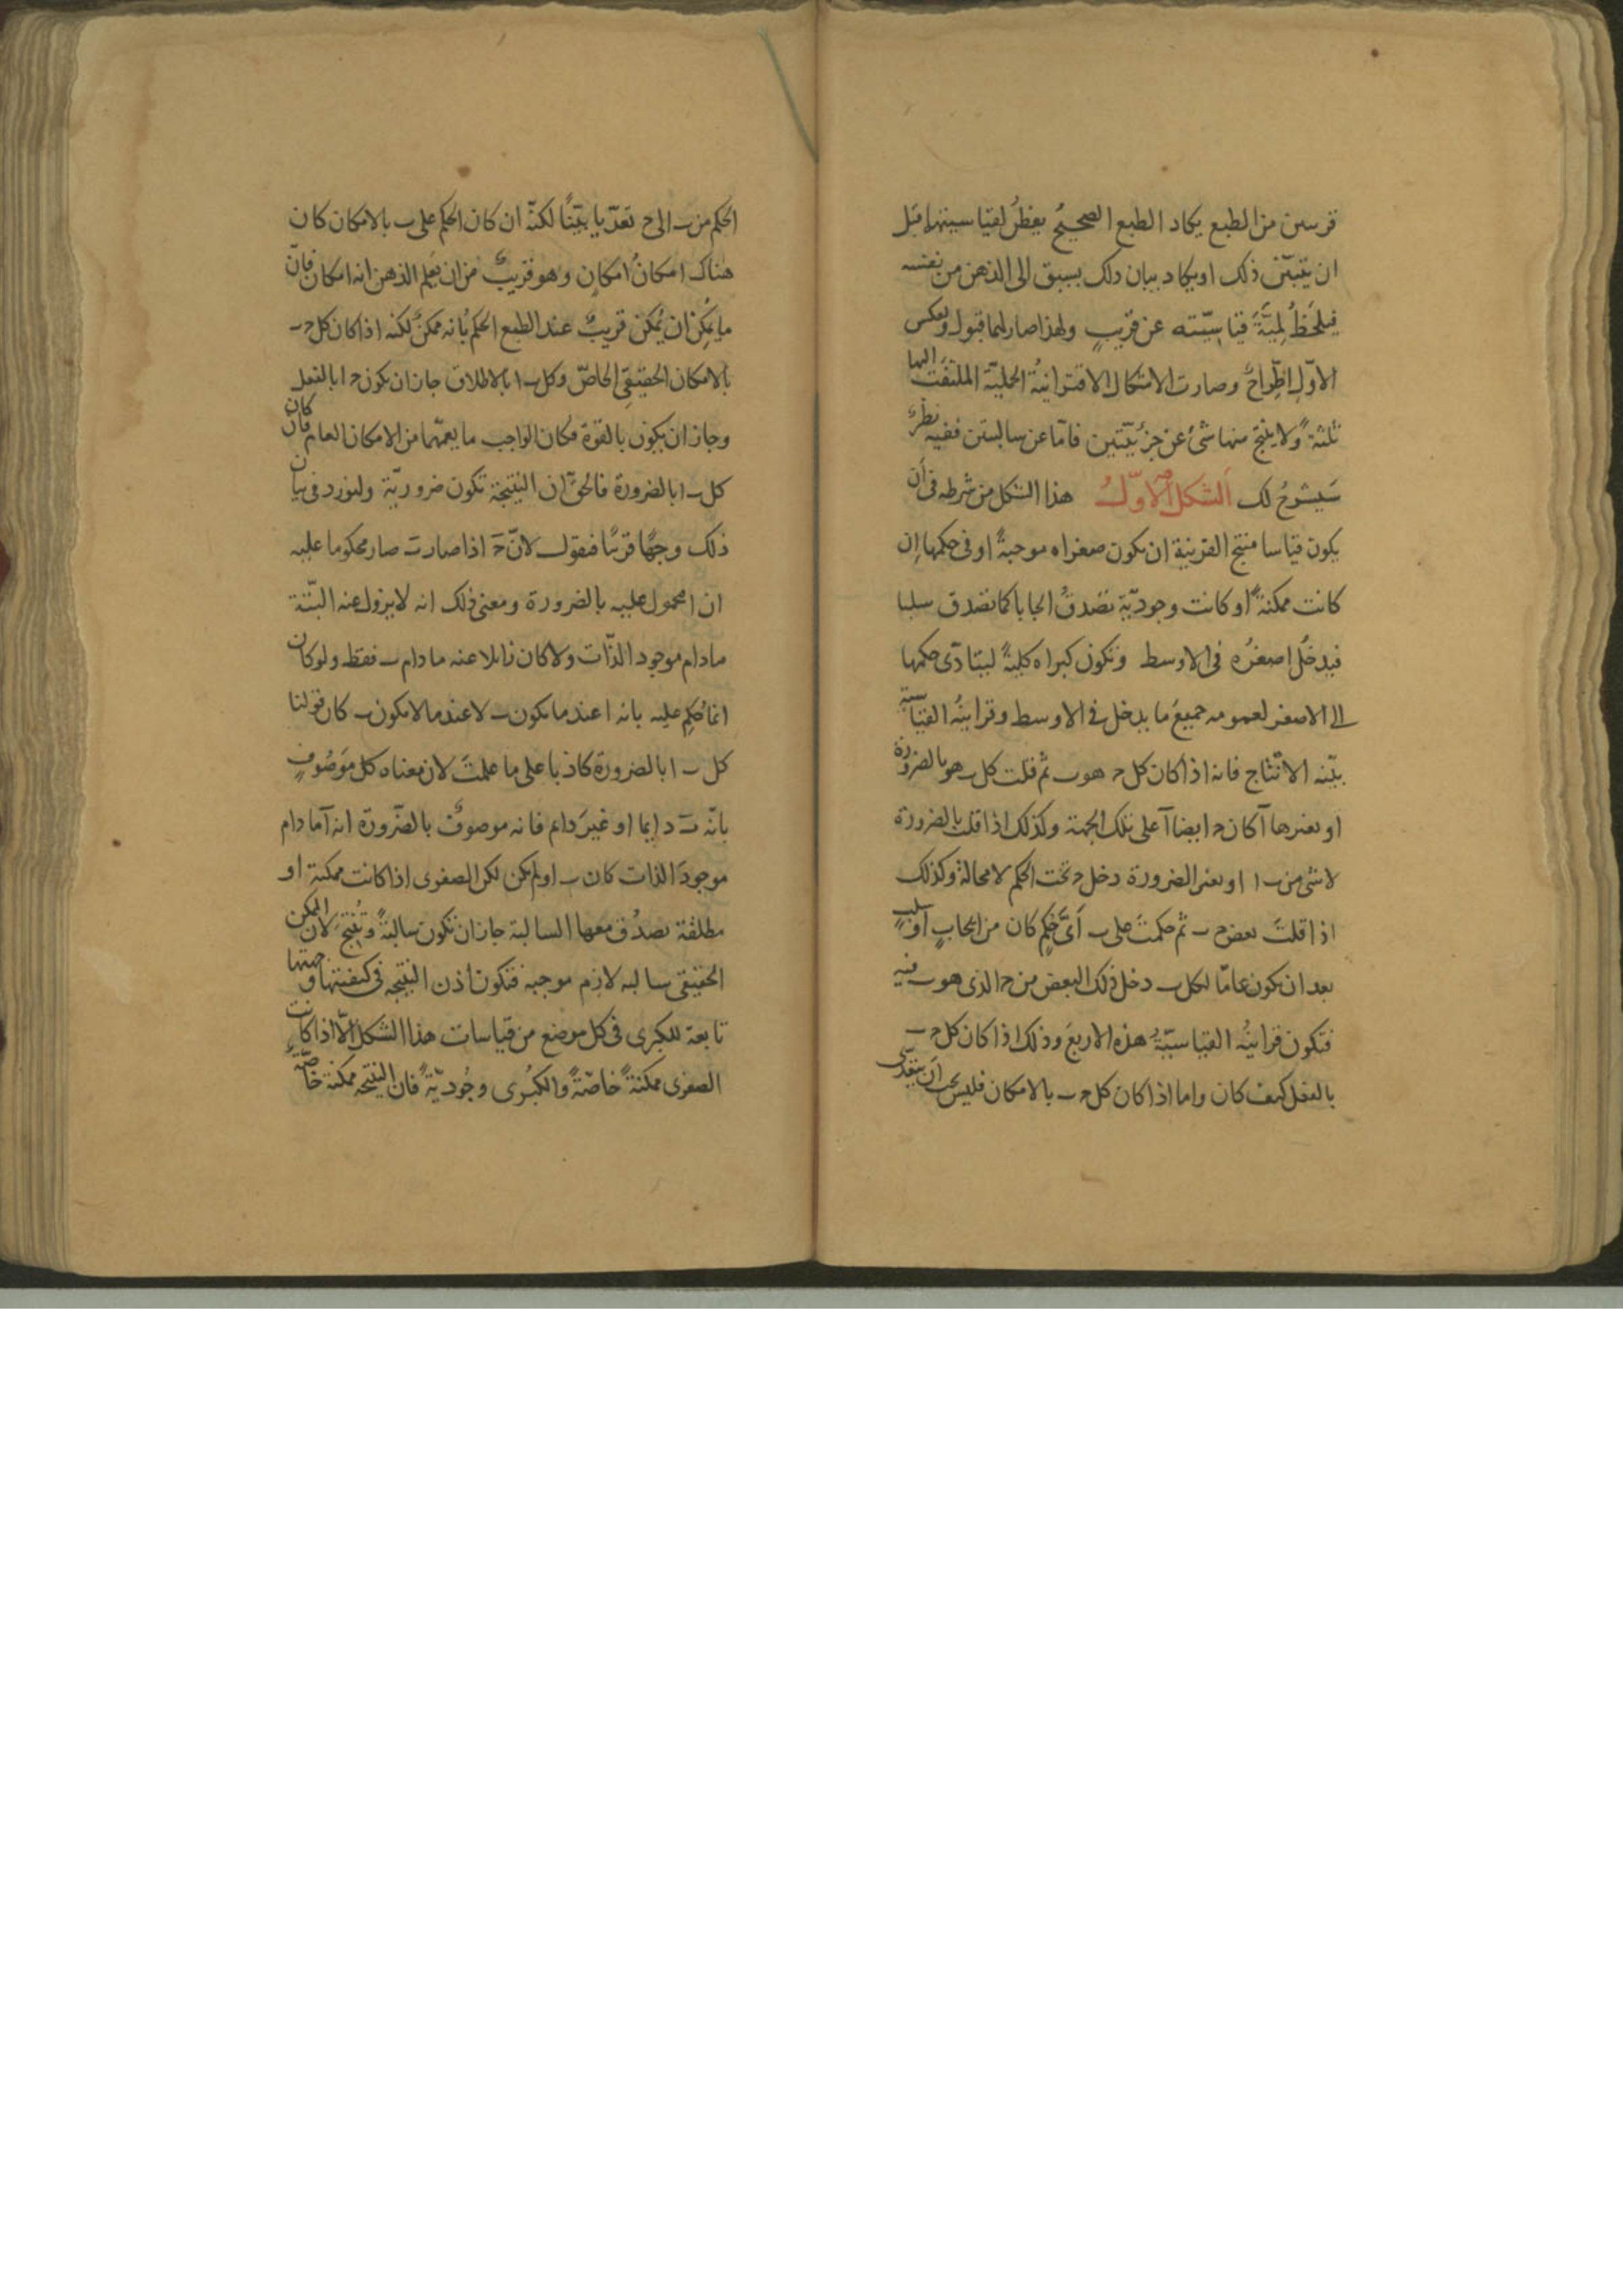 قرسىن من الطبع يكاد الطبع الصحيح يفطن لقياسيتهما قبل
ان يتبيّن ذلك او يكاد بيان ذلك يسبق الى الذهن من نفسه
فيلحظ لميّة قياسيّته عن قريب ولهذا صار لهما قبول ولعكس
الاوّل اطّراح وصارت الاشكال الاقترانية الحمليّة الملتفت اليها
ثلثة ولا ينتج منها شئ عن جزئيّتين فامّا عن سالبتين ففيه نظر
سيشرح لك الشكل الاوّل هذا الشكل من شرطه فى ان
يكون قياسا منتج القرينة ان يكون صغراه موجبة او فى حكمها ان
كانت ممكنة او كانت وجوديّة تصدق ايجابا كما تصدق سلبا
فيدخل اصغره فى الاوسط وتكون كبراه كليّة ليتادّى حكمها
الى الاصغر لعمومه جميع ما يدخل فى الاوسط وقراينه القياسيّة
بيّنه الانتاج فانه اذا كان كل ح هو ب ثم قلت كل ب هو بالضرورة
او بغيرها آ كان ح ايضا آ على تلك الجهة وكذلك اذا قلت بالضرورة
لا شئ من ب ا او بغير الضرورة دخل ح تحت الحكم لا محالة وكذلك
اذا قلت بعض ح ب ثم حكمت على ب اىّ حكم كان من ايجاب او سلب
بعد ان يكون عامّا لكل ب دخل ذلك البعض من ح الذى هو ب فيه
فتكون قراينه القياسيّة هذه الاربع وذلك اذا كان كل ح ب
بالفعل كيف كان واما اذا كان كل ح ب بالامكان فليس يجب ان يتعدّى
الحكم من ب الى ح تعدّيا بيّنا لكنّه ان كان الحكم على ب بالامكان كان
هناك امكان امكان وهو قريب من ان يعلم الذهن انه امكان فانّ
ما يمكن ان يمكن قريب عند الطبع الحكم بانه ممكن لكنه اذا كان كل ح ب
بالامكان الحقيقى الخاصّ وكل ب ا بالاطلاق جاز ان يكون ح ا بالفعل
وجاز ان يكون بالقوة فكان الواجب ما يعمّهما من الامكان العام فان كان
كل ب ا بالضرورة فالحق ان النتيجة تكون ضروريّة ولنورد فى بيان
ذلك وجها قريبا فنقول لانّ ح اذا صارت ب صار محكوما عليه
ان ا محمول عليه بالضرورة ومعنى ذلك انه لا يزول عنه البتّة
مادام موجود الذّات ولا كان زايلا عنه مادام ب فقط ولو كان
انما حكم عليه بانه ا عند ما يكون ب لا عند ما لا يكون ب كان قولنا
كل ب ا بالضرورة كاذبا على ما علمت لان معناه كل موصوف
بانّه ب دايما او غير دايم فانه موصوف بالضّرورة انه آ ما دام
موجود الذات كان ب او لم يكن لكن الصغرى اذا كانت ممكنة او
مطلقة تصدق معها السالبة جاز ان تكون سالبة وتنتج لان الممكن
الحقيقى سالبه لازم موجبه فتكون اذن النتيجه فى كيفيتها وجهتها
تابعة للكبرى فى كل موضع من قياسات هذا الشكل الّا اذا كانت
الصغرى ممكنة خاصّة والكبرى وجوديّة فان النتيجه ممكنة خاصّة